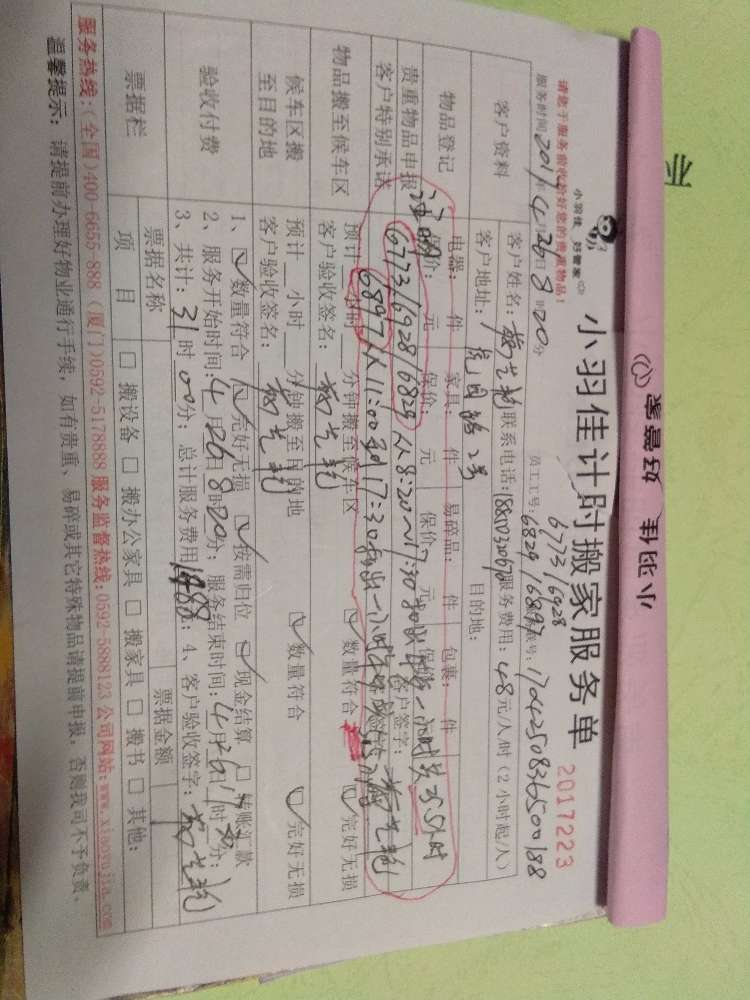 小羽佳 好管家
小羽佳计时搬家服务单
2017223
请您于服务前收拾好您的贵重物品!
6773/6928
员工工号: 6829/6897 号: 170425083650188
服务时间 2017年4月26日8时20分
客户资料
客户姓名: 联系电话: 服务费用: 48元/人/时(2小时起/人)
客户地址: 虎园路2号 目的地:
物品登记
电器: 件 家具: 件 易碎品: 件 包裹: 件
贵重物品申报
保价: 元 保价: 元 保价: 元 保价:
客户特别承诺
6773/6928/6829 从8:20~17:30 一小时 共25.5小时
客户签字:
6897从11:00到17:30 一小时
物品搬至候车区
预计 小时 分钟搬至候车区 数量符合 完好无损
客户验收签名:
候车区搬至目的地
预计 小时 分钟搬至目的地 数量符合 完好无损
客户验收签名:
验收付费
1、 数量符合 完好无损 按需归位 现金结算 转账汇款
2、服务开始时间: 4月26日8时20分; 服务结束时间: 4月26日17时30分;
3、共计: 31时00分; 总计服务费用 1488 ; 4、客户验收签字:
票据栏
票据名称 票据金额
项 目 搬设备 搬办公家具 搬家具 搬书 其他:
服务热线:(全国)400-6655-888 (厦门)0592-5178888 服务监督热线:0592-5888123 公司网站:www.xiaoyujia.com
温馨提示: 请提前办理好物业通行手续,如有贵重、易碎或其它特殊物品请提前申报,否则我司不予负责.